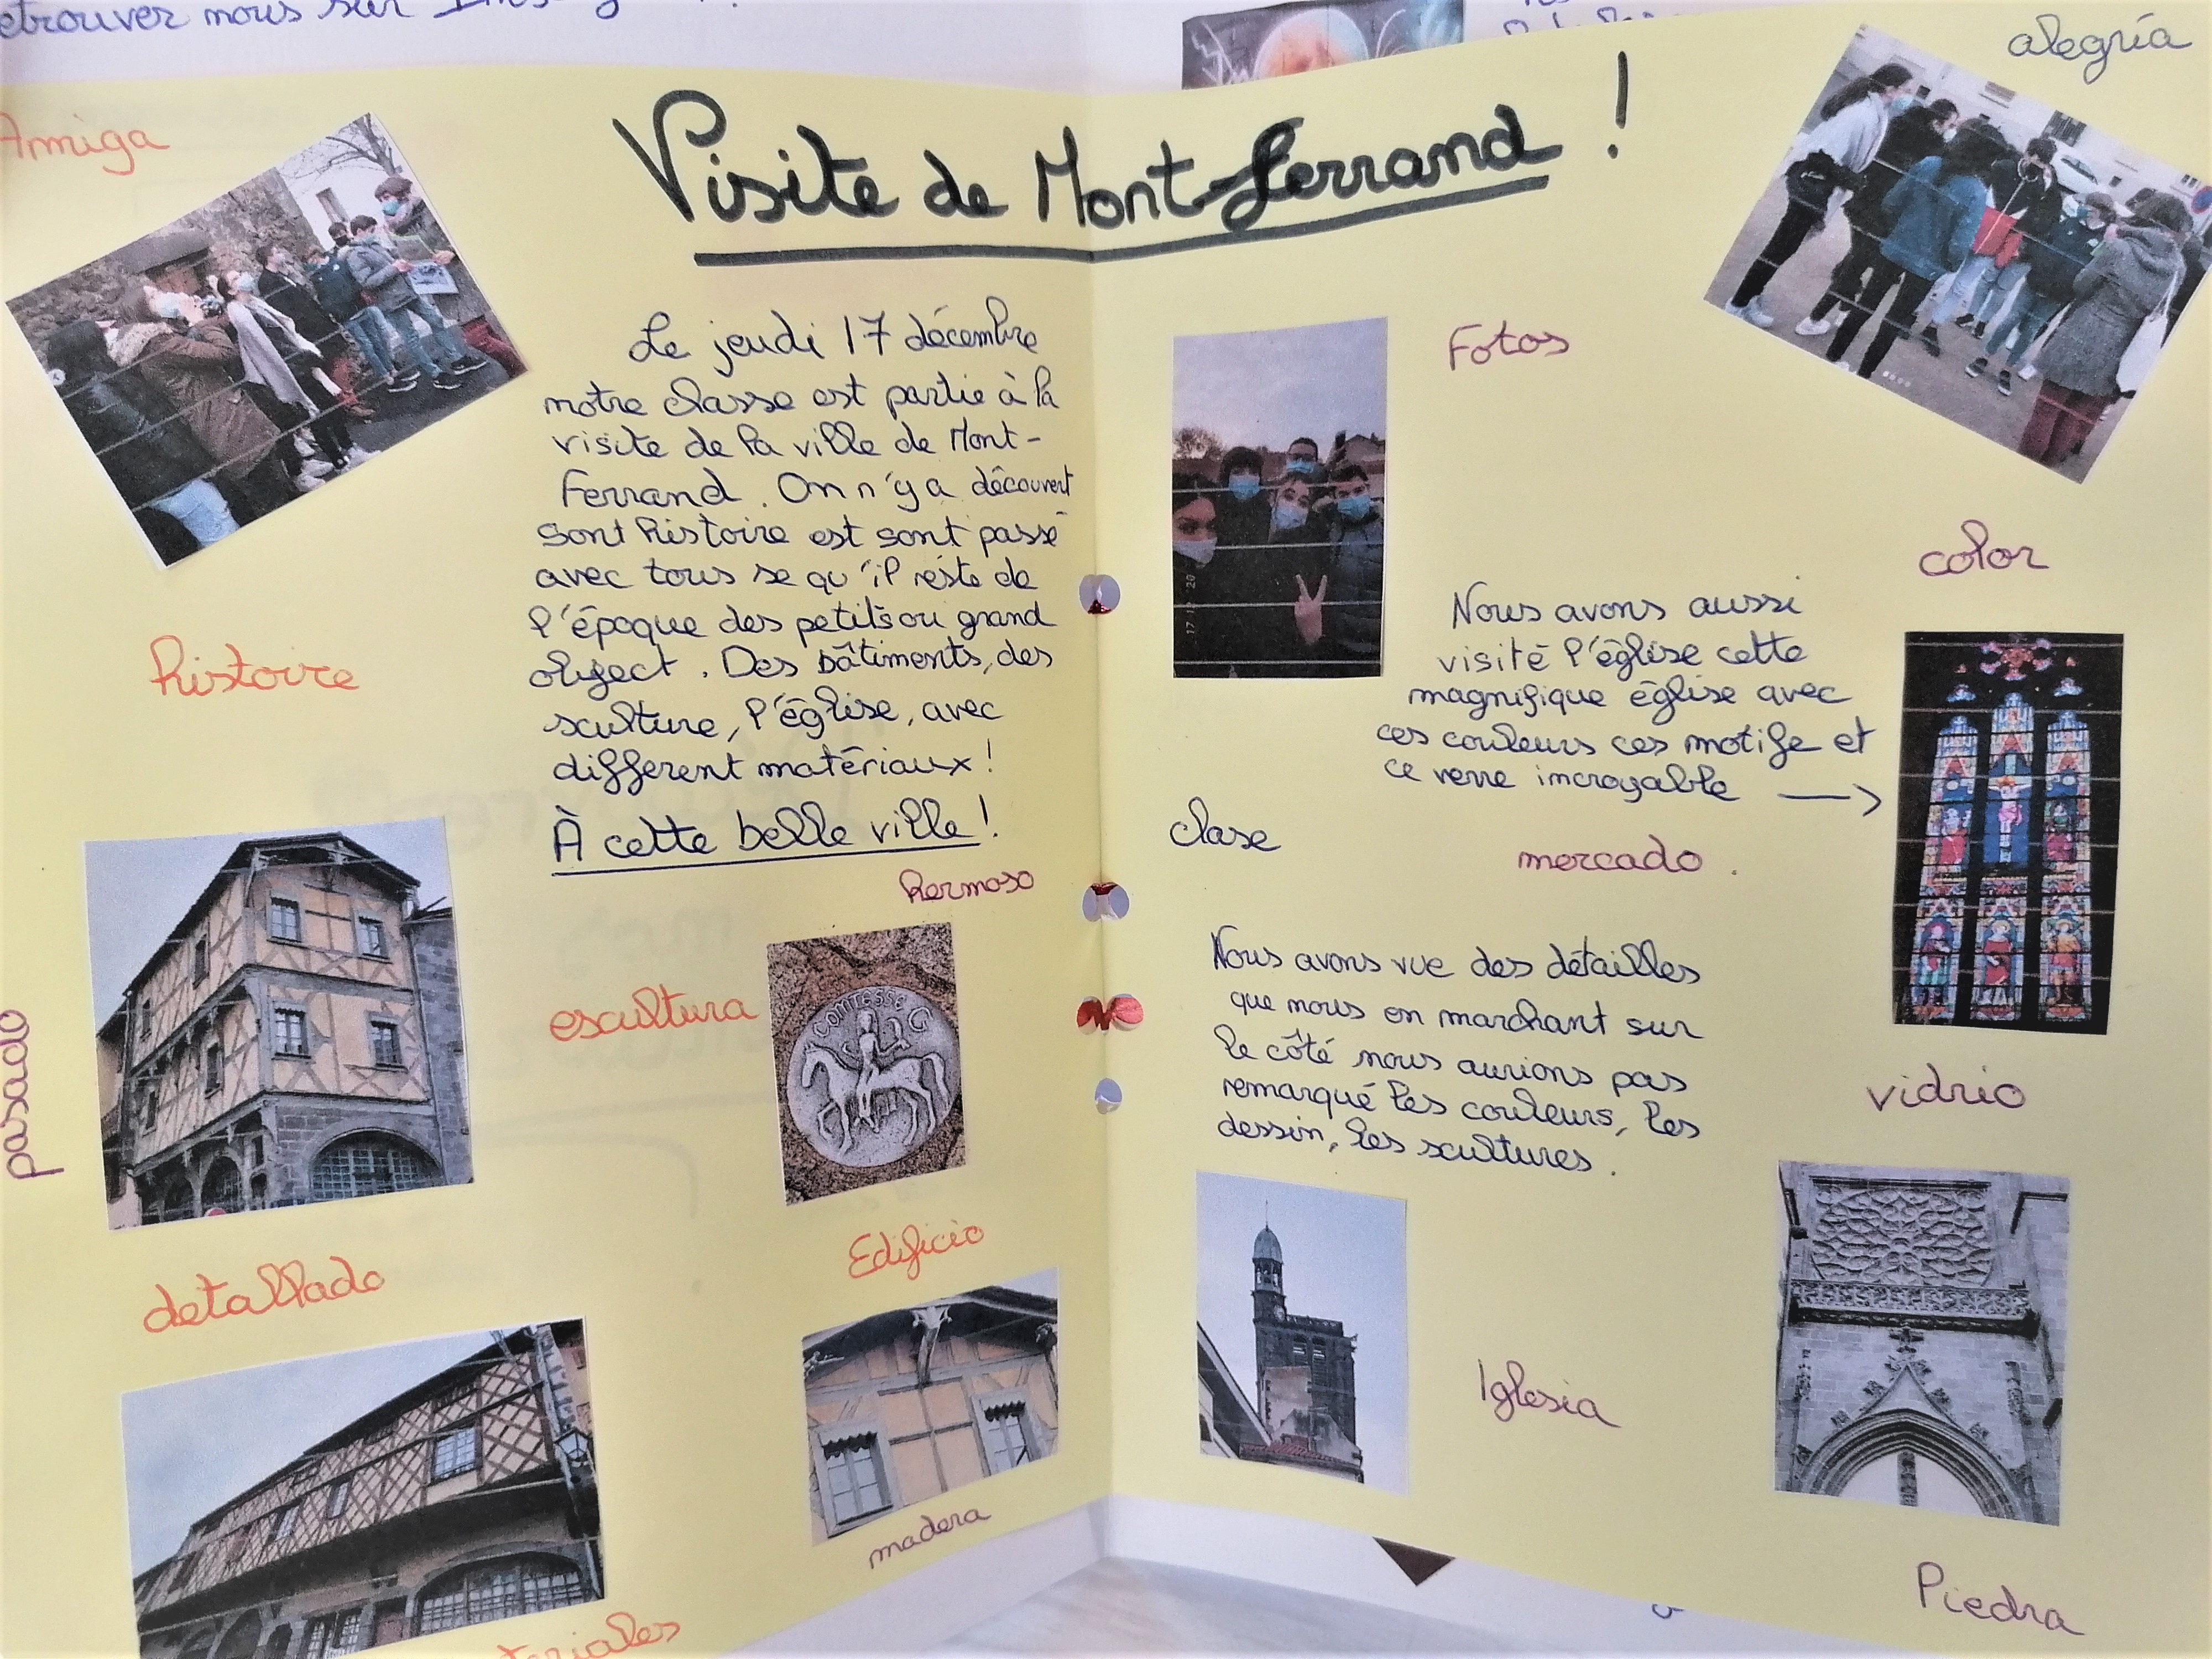 etrouver nous sur
alegría
Amiga
Visite de Mont-Ferrand !
Le jeudi 17 décembre
notre classe est partie à la
visite de la ville de Mont-
Ferrand. On n'y a découvert
sont histoire est sont passé
avec tous se qu'il réste de
l'époque des petits ou grand
object. Des bâtiments, des
sculture, l'église, avec
different matériaux !
À cette belle ville !
histoire
hermoso
escultura
COMTESSE G
pasado
detallado
Edificio
madera
teriales
Fotos
17 12 20
color
Nous avons aussi
visité l'église cette
magnifique église avec
ces couleurs ces motife et
ce verre incroyable →
clase
mercado.
Nous avons vue des détailles
que nous en marchant sur
le côté nous aurions pas
remarqué les couleurs, les
dessin, les scultures.
vidrio
Iglesia
Piedra